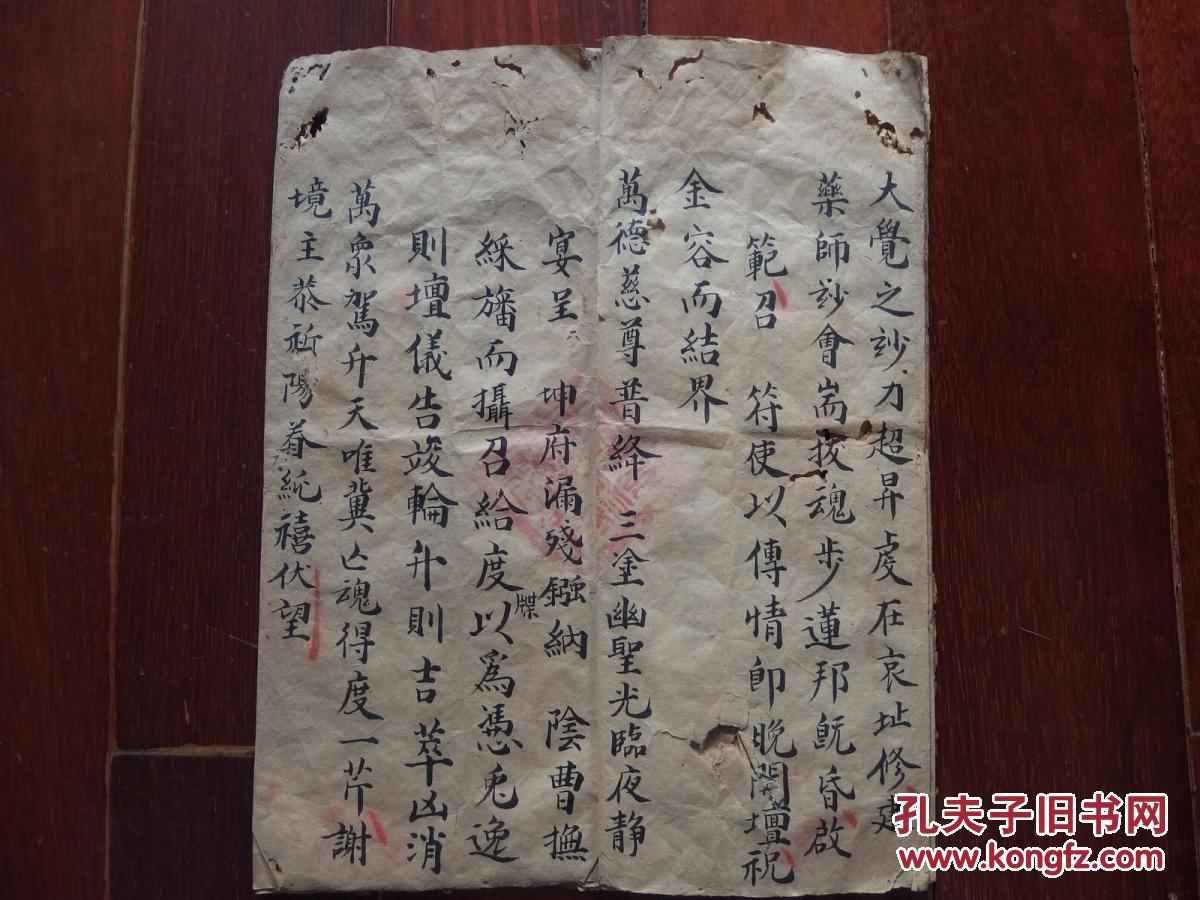 大覺之玅力超昇虔在哀址修建
藥師玅會耑拔魂步蓮邦旣昏啟
範召 符使以傳情即晚開壇祝
金容而結界
萬德慈尊普絳 三塗幽聖光臨夜靜
宴呈 坤府漏殘鏹納 陰曹撫
綵旛而攝召給度牒以爲憑兎逸
則壇儀告竣輪升則吉萃凶消
萬象駕升天唯冀亡魂得度一芹謝
境主恭祈陽眷純禧伏望
孔夫子旧书网
www.kongfz.com